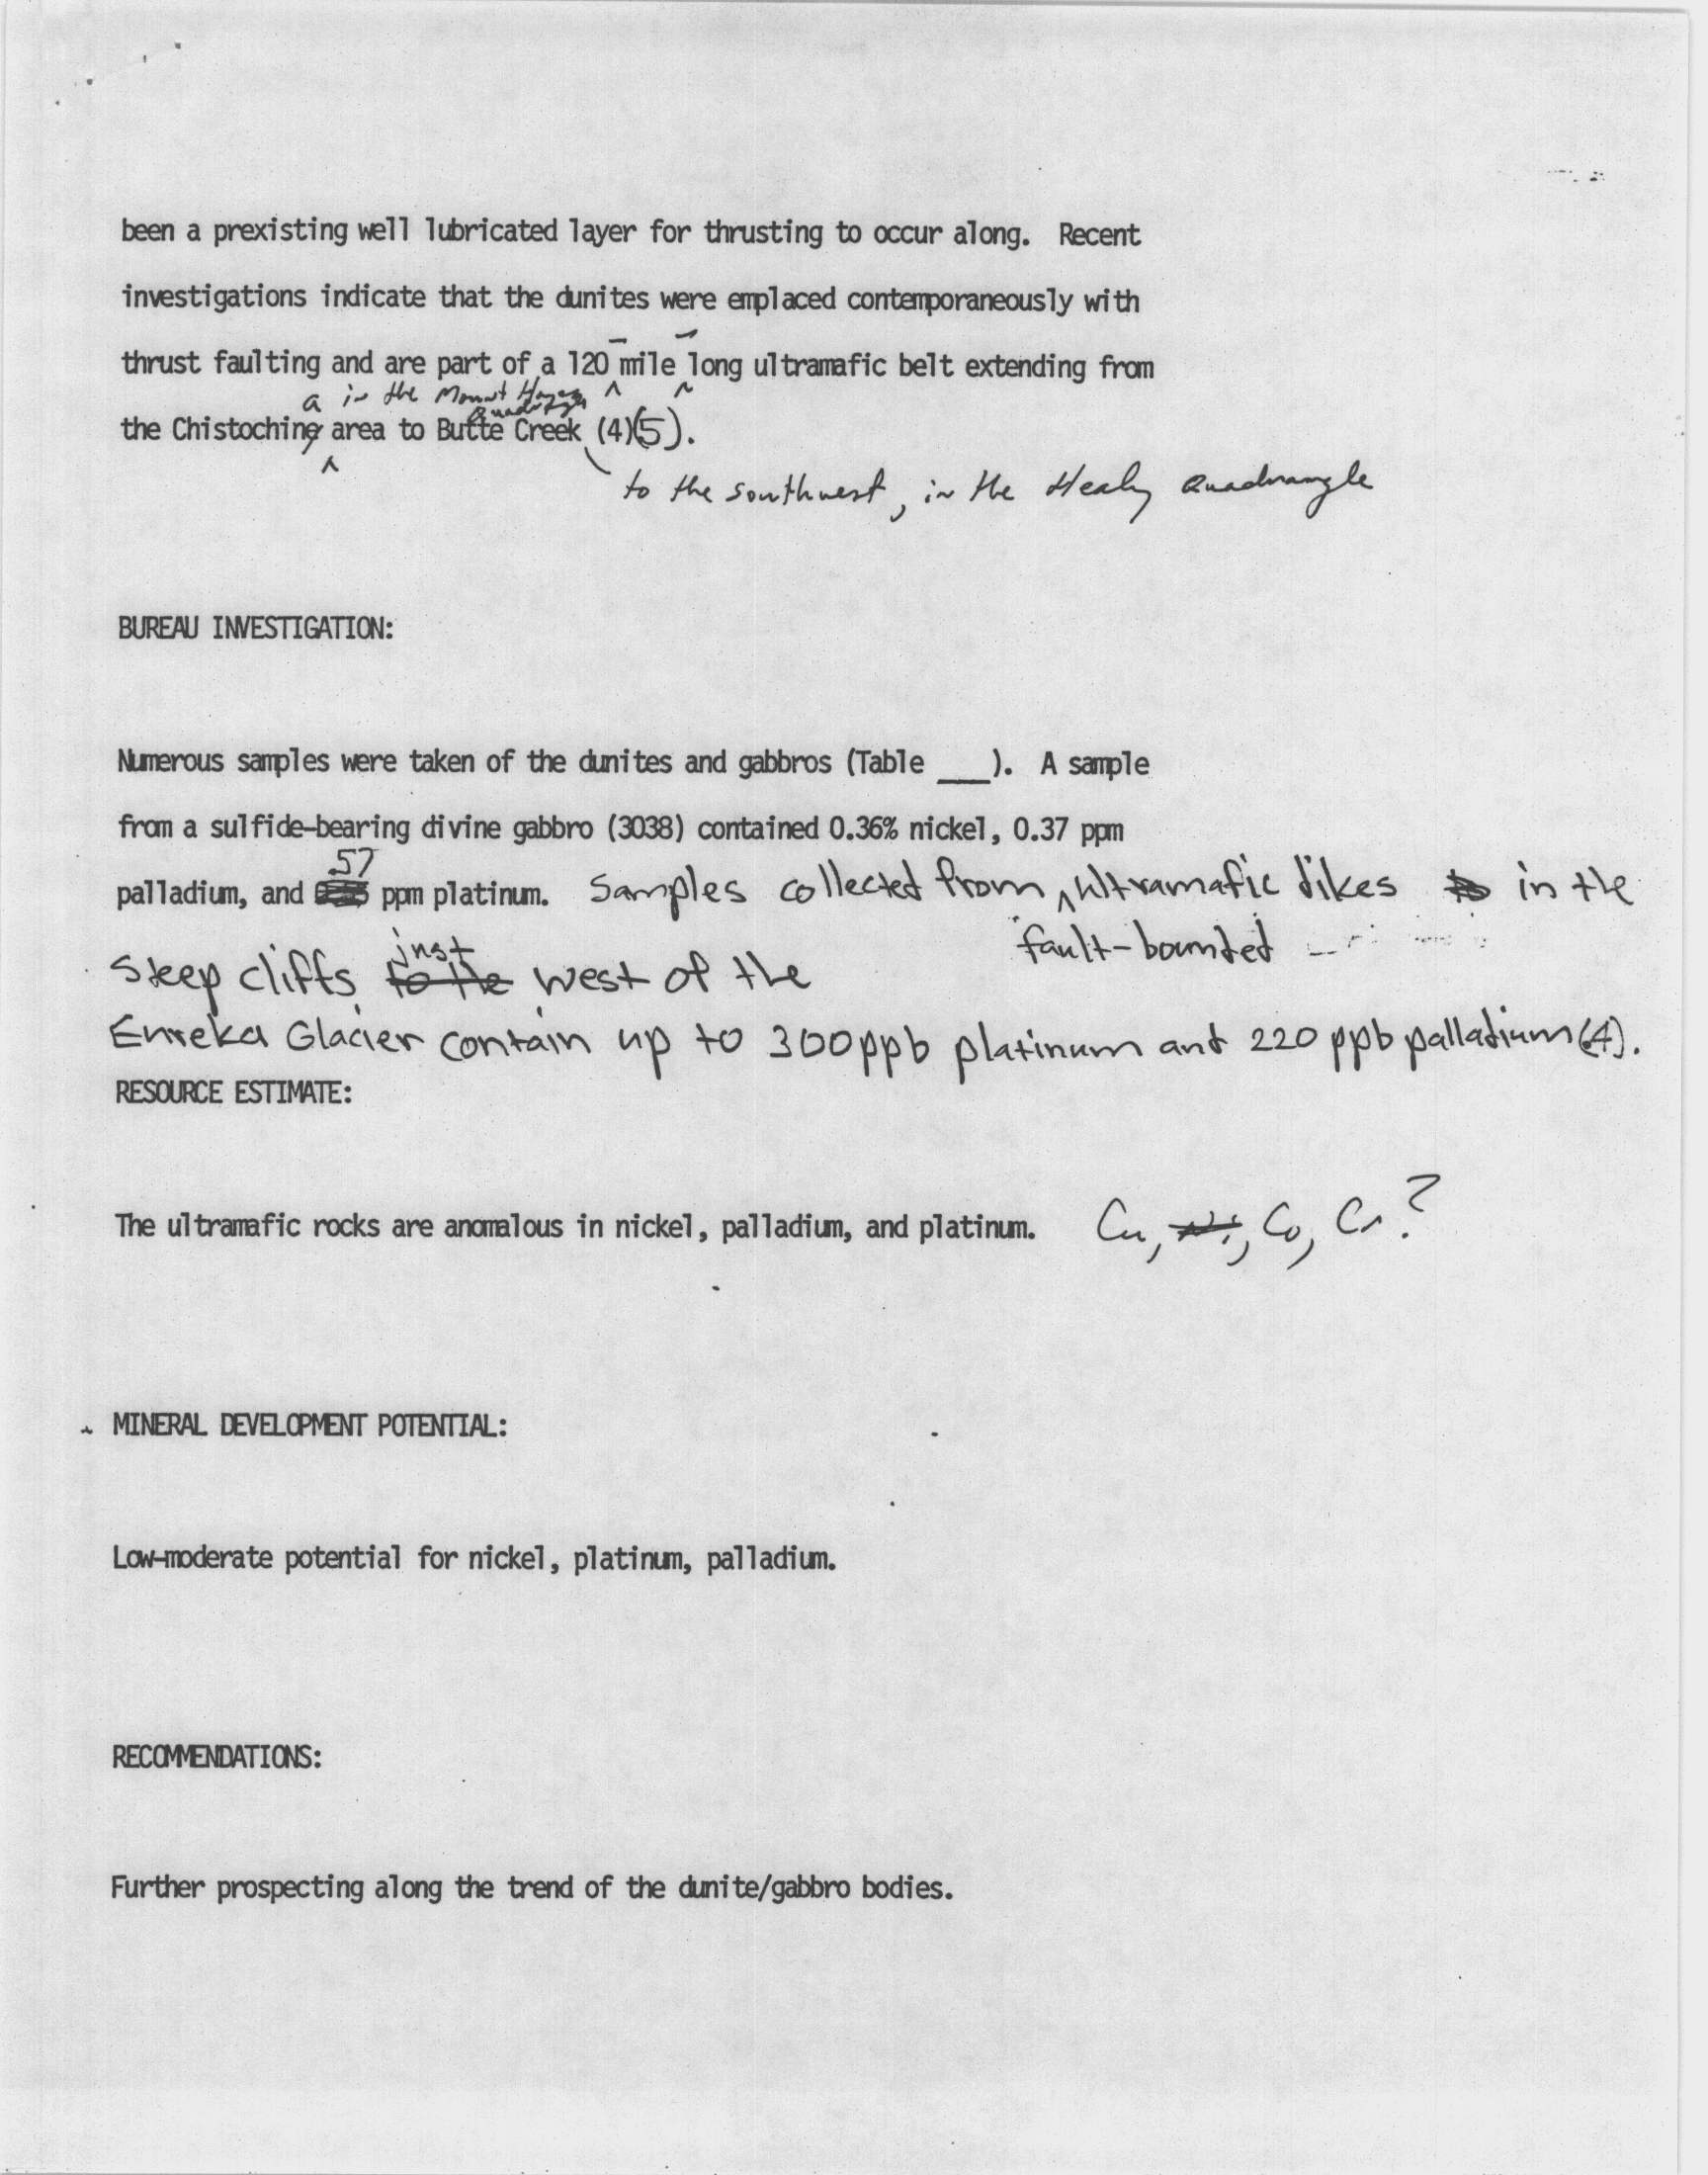 been a prexisting well lubricated layer for thrusting to occur along. Recent
investigations indicate that the dunites were emplaced contemporaneously with
thrust faulting and are part of a 120 mile long ultramafic belt extending from
a in the Mount Hayes
Quadrangle
the Chistoching area to Butte Creek (4)(5).
to the southwest, in the Healy Quadrangle
BUREAU INVESTIGATION:
Numerous samples were taken of the dunites and gabbros (Table ___). A sample
from a sulfide-bearing divine gabbro (3038) contained 0.36% nickel, 0.37 ppm
.57
palladium, and ppm platinum. Samples collected from ultramafic dikes in the
fault-bounded
just
steep cliffs to the west of the
Eureka Glacier contain up to 300 ppb platinum and 220 ppb palladium (4).
RESOURCE ESTIMATE:
The ultramafic rocks are anomalous in nickel, palladium, and platinum. Cu, Ni, Co, Cr?
MINERAL DEVELOPMENT POTENTIAL:
Low-moderate potential for nickel, platinum, palladium.
RECOMMENDATIONS:
Further prospecting along the trend of the dunite/gabbro bodies.